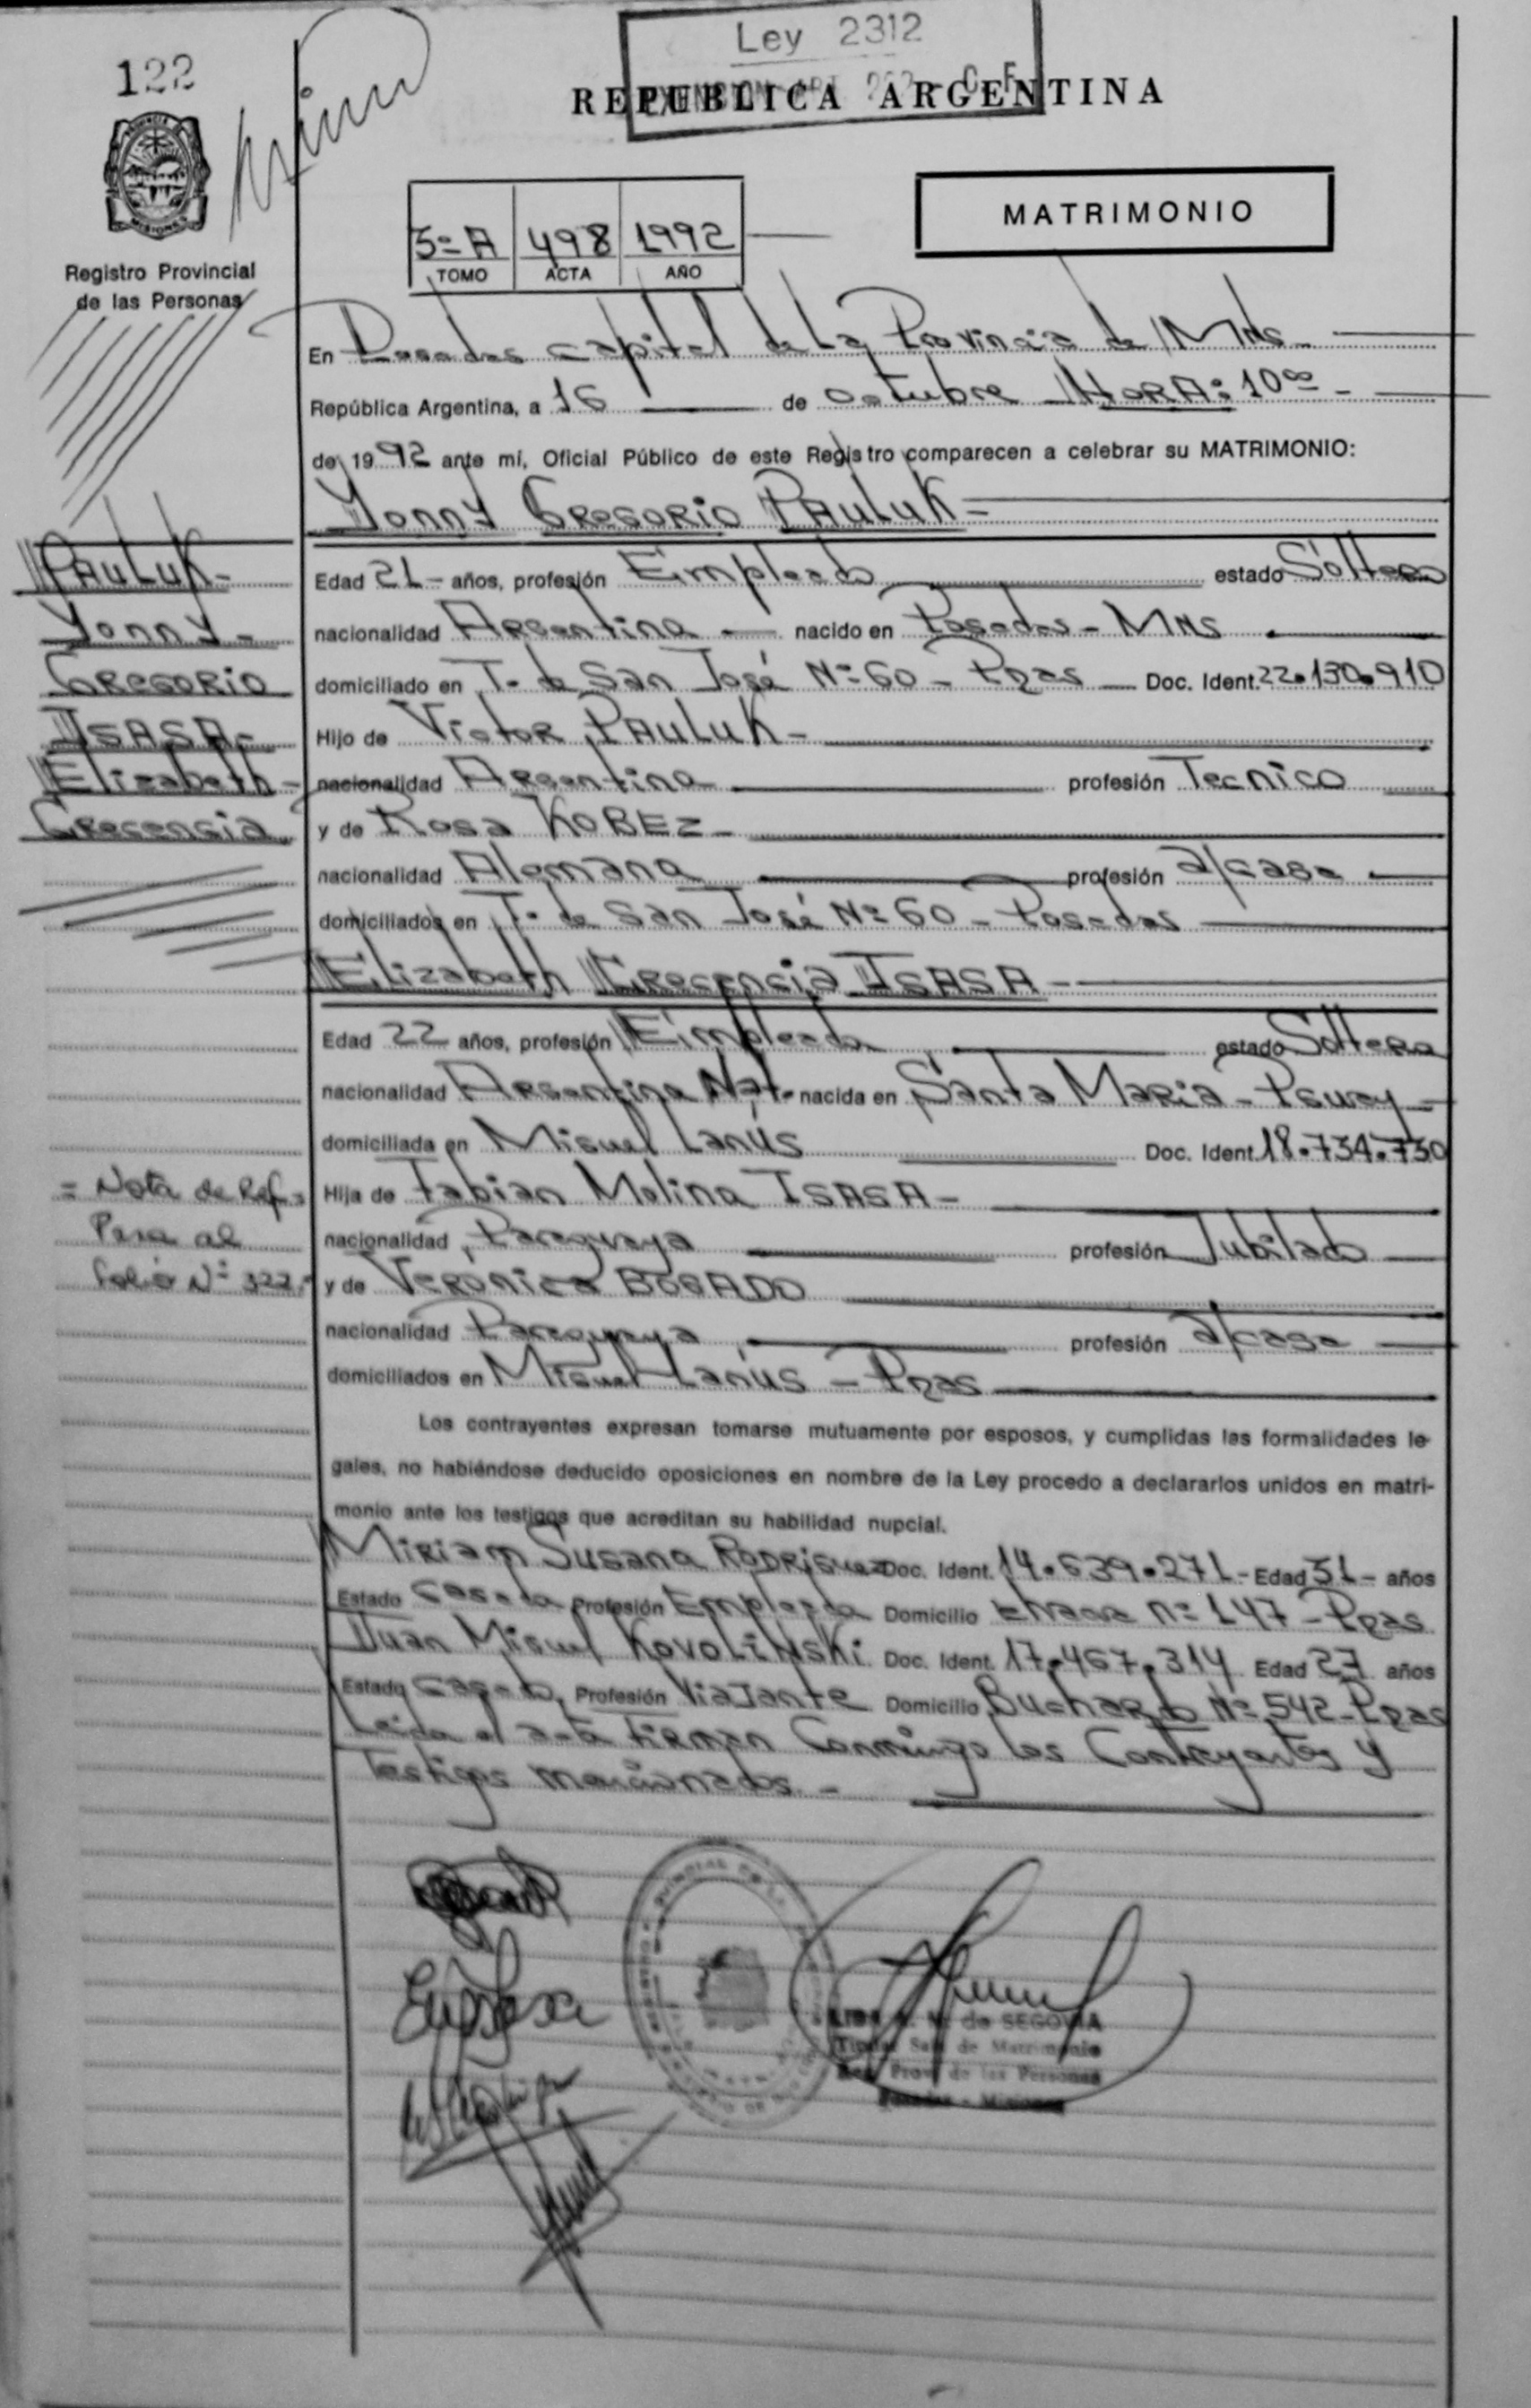 Ley 2312
122
REPUBLICA ARGENTINA
MISIONES
Registro Provincial
de las Personas
MATRIMONIO
5º A 498 1992
TOMO ACTA AÑO
En Posadas capital de la Provincia de Mnes
República Argentina, a 16 de octubre HORA: 10 00
de 1992 ante mí, Oficial Público de este Registro comparecen a celebrar su MATRIMONIO:
Yonny Gregorio PAULUK
PAULUK
Yonny
Gregorio
ISASA
Elizabeth
Crecencia
Edad 21 años, profesión Empleado estado Soltero
nacionalidad Argentina nacido en Posadas - Mns
domiciliado en T. de San José Nº 60 - Pdas Doc. Ident. 22.130.910
Hijo de Victor PAULUK
nacionalidad Argentina profesión Tecnico
y de Rosa KOBEZ
nacionalidad Alemana profesión a/casa
domiciliados en T. de San José Nº 60 - Posadas
Elizabeth Crecencia ISASA
Edad 22 años, profesión Empleada estado Soltera
nacionalidad Argentina Nat. nacida en Santa Maria - Pguay
domiciliada en Miguel Lanús Doc. Ident. 18.734.730
= Nota de Ref.
Pasa al
folio Nº
Hija de Fabian Molina ISASA
nacionalidad Paraguaya profesión Jubilado
y de Verónica BOGADO
nacionalidad Paraguaya profesión a/casa
domiciliados en Miguel Lanús - Pdas
Los contrayentes expresan tomarse mutuamente por esposos, y cumplidas las formalidades le-
gales, no habiéndose deducido oposiciones en nombre de la Ley procedo a declararlos unidos en matri-
monio ante los testigos que acreditan su habilidad nupcial.
Miriam Susana RODRIGUEZ Doc. Ident. 14.639.271 - Edad 31 - años
Estado Casada Profesión Empleada Domicilio nº 147 - Pdas
Juan Miguel KOVOLINSKI Doc. Ident. 17.467.314 Edad 27 años
Estado Casado, Profesión Viajante Domicilio Buchardo Nº 542 - Pdas
Leida el acta firman Conmigo los Contrayentes y
Testigos mencionados
de SEGOVIA
Sala de Matrimonio
Reg. Prov. de las Personas
Posadas - Misiones